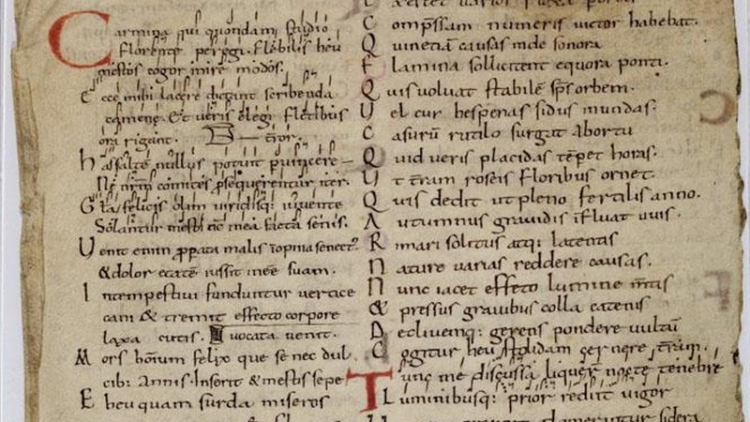 Carmina qui quondam studio
Florente peregi. Flebilis heu
mestos cogor inire modos.
Ecce mihi lacere dictant scribenda
camene. Et ueris elegi fletibus
ora rigant.
has saltē nullus potuit puincere
Ne nrm̄ comites psequerentur iter.
Glā felicis olim uiridisq: iuuente
Solantur mesti nc̄ mea facta senis.
Uenit enim ppata malis inopina senect?
& dolor etatē iussit inēe suam.
Intempestiui funduntur uertice
cani & tremit effecto corpore
laxa cutis.
Mors hominum felix que se nec dul
cib: annis. Inserit & mestis sepe
Eheu quam surda miseros
Compssam numeris uictor habebat.
Quinetiā causas unde sonora
Flamina sollicitent equora ponti.
Quis uoluat stabilē sps orbem.
Uel cur hesperias sidus in undas.
Casurū rutilo surgat abortu
Quid ueris placidas tēpet horas.
Ut tr̄ram roseis floribus ornet.
Quis dedit ut pleno fertilis anno.
Autumnus grauidis īfluat uuis.
Rimari solitus atq: latentis
Nature uarias reddere causas.
Nunc iacet effeto lumine m̄tis
& pressus grauibus colla catenis
Decliuemq: gerens pondere uultū
Cogitur heu stolidam cernere tr̄ram.
Tunc me discussa liquer nocte tenebrē
Luminibusq: prior rediit uigor